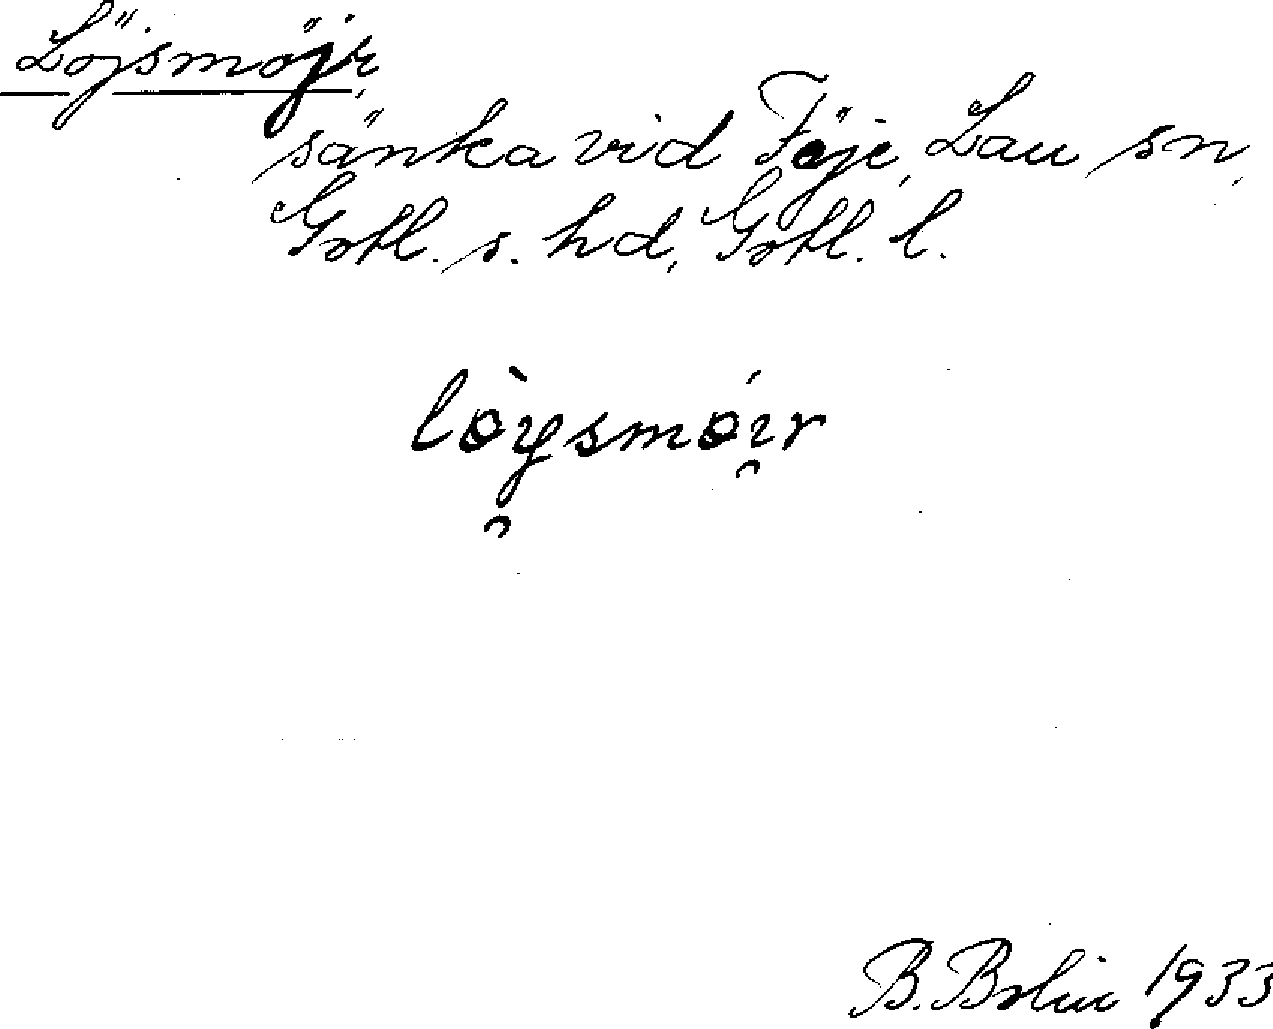 Löjsmöjr,
sänka vid Föje, Lau sn,
Gotl. s. hd, Gotl. l.
lò̖ysmóır
B. Bolin 1933